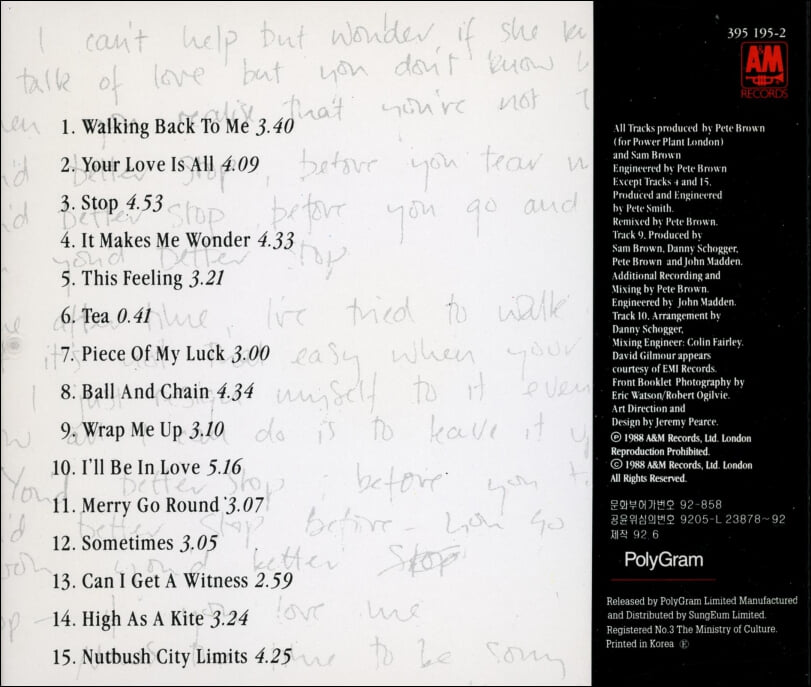 I can't help but wonder if she
talk of love but you don't know
realise that you're not
better stop, before you tear
better stop before you go and
better stop
time, I've tried to walk
easy when your
myself to it
do is to leave it
better stop, before you
better stop before you go
better stop
love me
time to be sorry
1. Walking Back To Me 3.40
2. Your Love Is All 4.09
3. Stop 4.53
4. It Makes Me Wonder 4.33
5. This Feeling 3.21
6. Tea 0.41
7. Piece Of My Luck 3.00
8. Ball And Chain 4.34
9. Wrap Me Up 3.10
10. I'll Be In Love 5.16
11. Merry Go Round 3.07
12. Sometimes 3.05
13. Can I Get A Witness 2.59
14. High As A Kite 3.24
15. Nutbush City Limits 4.25
395 195-2
A&M
RECORDS
All Tracks produced by Pete Brown
(for Power Plant London)
and Sam Brown
Engineered by Pete Brown
Except Tracks 4 and 15,
Produced and Engineered
by Pete Smith.
Remixed by Pete Brown.
Track 9, Produced by
Sam Brown, Danny Schogger,
Pete Brown and John Madden.
Additional Recording and
Mixing by Pete Brown.
Engineered by John Madden.
Track 10, Arrangement by
Danny Schogger,
Mixing Engineer: Colin Fairley.
David Gilmour appears
courtesy of EMI Records.
Front Booklet Photography by
Eric Watson/Robert Ogilvie.
Art Direction and
Design by Jeremy Pearce.
Ⓟ 1988 A&M Records, Ltd. London
Reproduction Prohibited.
© 1988 A&M Records, Ltd. London
All Rights Reserved.
문화부허가번호 92-858
공윤위심의번호 9205-L 23878~92
제작 92.6
PolyGram
Released by PolyGram Limited Manufactured
and Distributed by SungEum Limited.
Registered No.3 The Ministry of Culture.
Printed in Korea Ⓔ